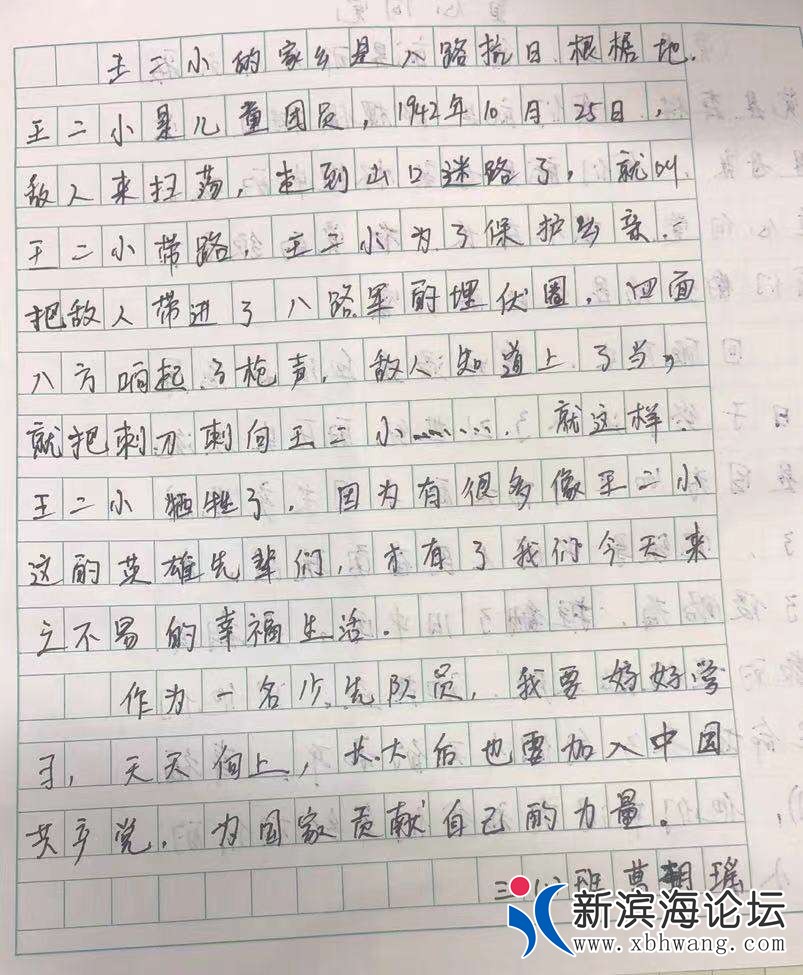 王二小的家乡是八路抗日根据地.
王二小是儿童团员，1942年10月25日，
敌人来扫荡，走到山口迷路了，就叫
王二小带路．王二小为了保护乡亲．
把敌人带进了八路军的埋伏圈．四面
八方响起了枪声．敌人知道上了当，
就把刺刀刺向王二小……．就这样．
王二小牺牲了．因为有很多像王二小
这的英雄先辈们，才有了我们今天来
之不易的幸福生活．
作为一名少先队员，我要好好学
习，天天向上，长大后也要加入中国
共产党．为国家贡献自己的力量。
三(1)班 瑶
新滨海论坛
www.xbhwang.com